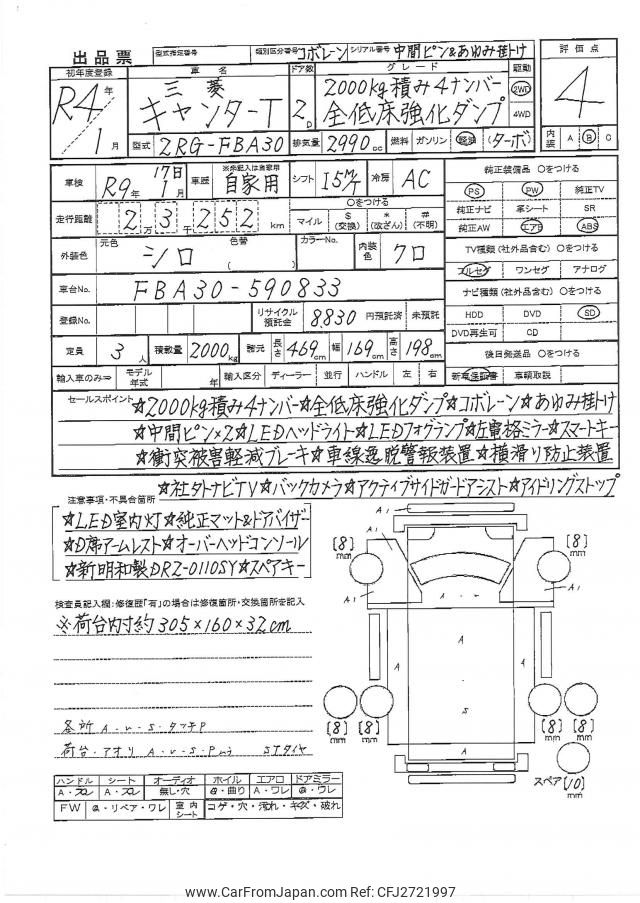 出品票 型式指定番号 類別区分番号 コボレーン シリアル番号 中間ピン&あゆみ掛け 評価点
初年度登録 車名 ドア数 グレード 駆動
R4年 三菱 2000kg積み4ナンバー 2WD 4
1月 キャンターT 2D 全低床強化ダンプ 4WD
型式 2RG-FBA30 排気量 2990cc 燃料 ガソリン 軽油 (ターボ) 内装 A B C
車検 R9年 17日 1月 車歴 ※未記入は自家用 自家用 シフト I5M/T 冷房 AC 純正装備品 ○をつける
PS PW 純正TV
走行距離 2万3千252km ○をつける マイル $(交換) *(改ざん) #(不明) 純正ナビ 革シート SR
純正AW エアB ABS
外装色 元色 シロ 色替 ( ) カラーNo. 内装色 クロ TV種類(社外品含む) ○をつける
フルセグ ワンセグ アナログ
車台No. FBA30-590833 ナビ種類(社外品含む) ○をつける
登録No. リサイクル預託金 8,830 円預託済 未預託 HDD DVD SD
DVD再生可 CD
定員 3人 積載量 2000kg 諸元 長さ 469cm 幅 169cm 高さ 198cm 後日発送品 ○をつける
輸入車のみ⇒ モデル年式 年 輸入区分 ディーラー 並行 ハンドル 左 右 新車保証書 車輌取説
セールスポイント ★2000kg積み4ナンバー★全低床強化ダンプ★コボレーン★あゆみ掛け
★中間ピン×2★LEDヘッドライト★LEDフォグランプ★左電格ミラー★スマートキー
★衝突被害軽減ブレーキ★車線逸脱警報装置★横滑り防止装置
★社外ナビTV★バックカメラ★アクティブサイドガードアシスト★アイドリングストップ
注意事項・不具合箇所
★LED室内灯★純正マット&ドアバイザー
★D席アームレスト★オーバーヘッドコンソール
★新明和製DRZ-0110SY★スペアキー
検査員記入欄:修復歴「有」の場合は修復箇所・交換箇所を記入
※荷台内寸約305×160×32cm
各所 A・U・S・タッチP
荷台・アオリ A・U・S・P
ハンドル シート オーディオ ホイル エアロ ドアミラー
A・スレ A・スレ 無し・穴 ・曲り A・ワレ ・ワレ
FW ・リペア・ワレ 室内シート コゲ・穴・汚れ・キズ・破れ
A1
A1
A1
[8]mm
[8]mm
A
A
A
S
A
[8]mm
[8]mm
[8]mm
[8]mm
スペア [10]mm
www.CarFromJapan.com Ref: CFJ2721997